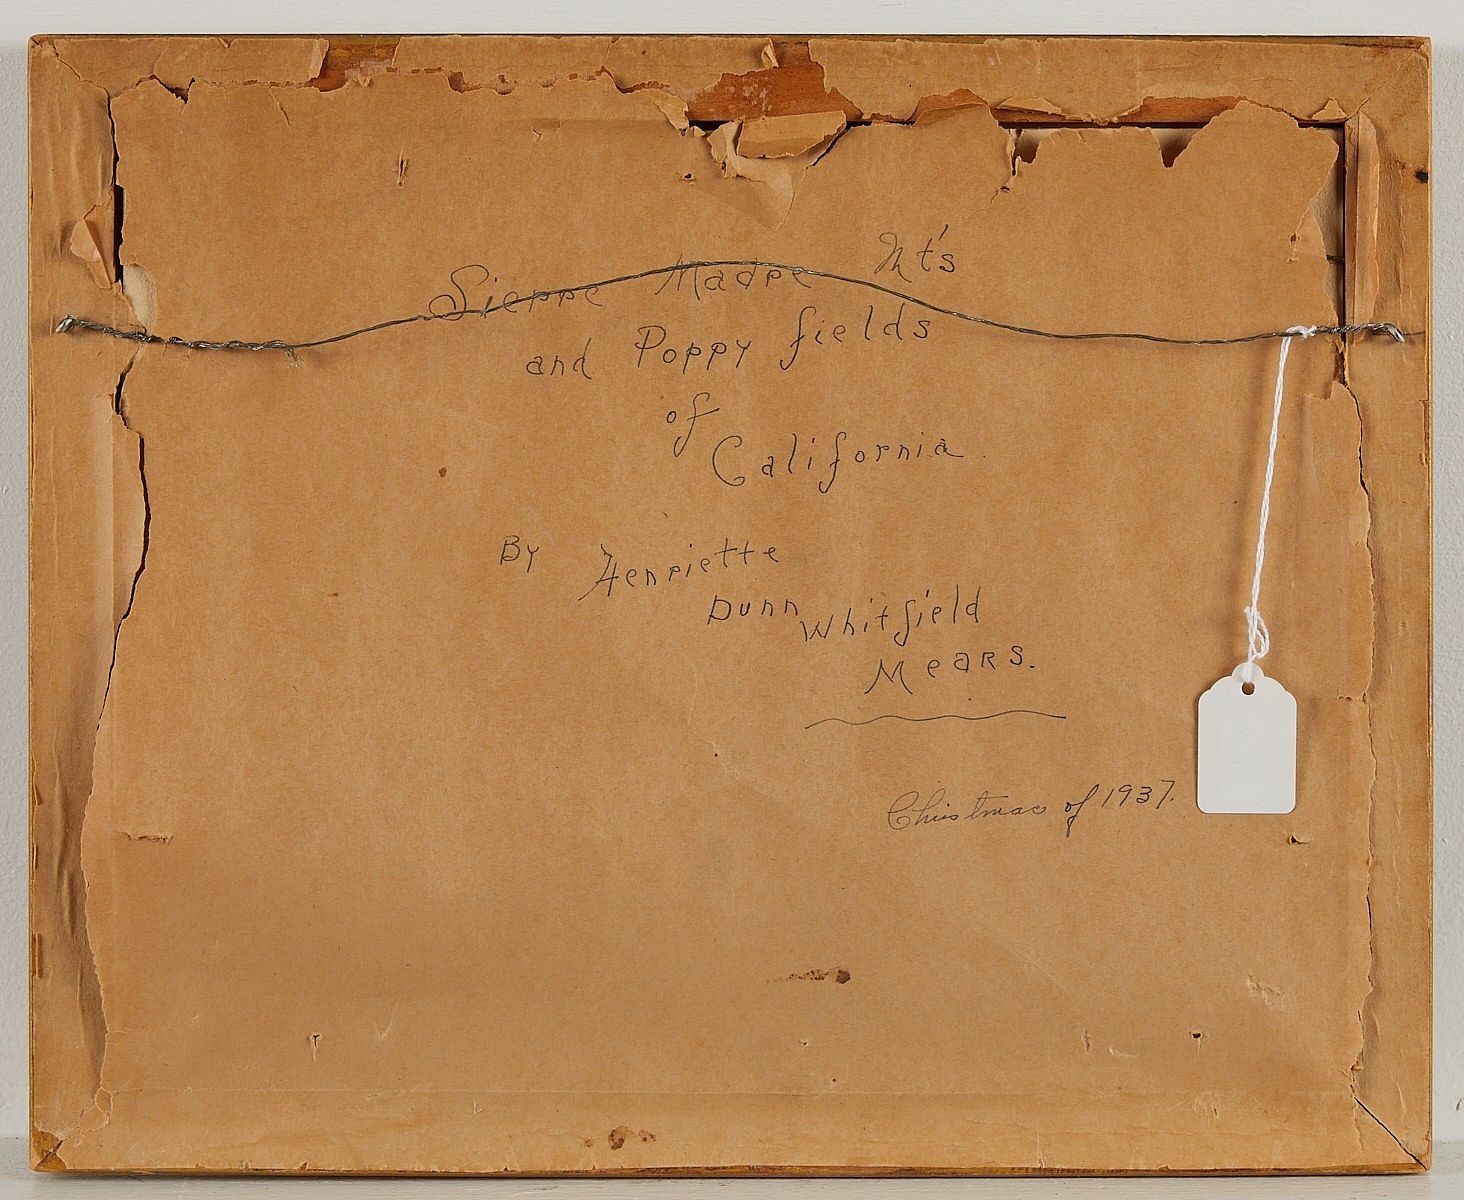 Sierre Madre Mt's
and Poppy fields
of
California.
By Henriette
Dunn Whitfield
Mears.
Christmas of 1937.